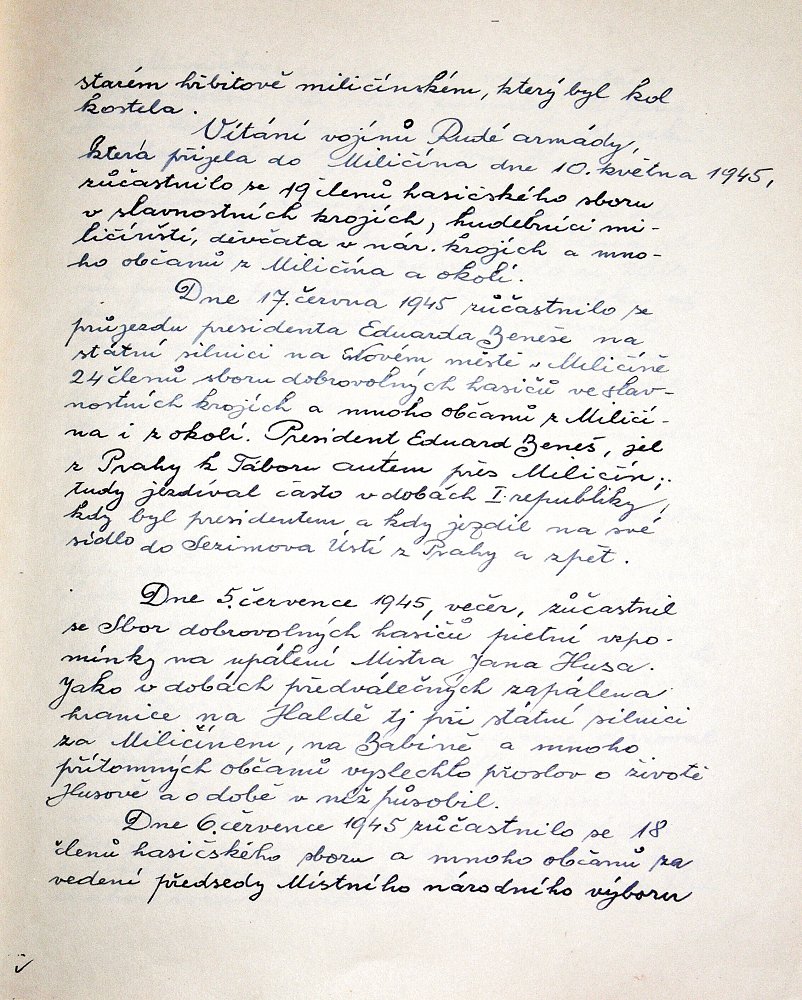 starém hřbitově miličínském, který byl kol
kostela.
Vítání vojínů Rudé armády,
která přijela do Miličína dne 10. května 1945,
zúčastnilo se 19 členů hasičského sboru
v slavnostních krojích, hudebníci mi-
ličínští, děvčata v nár. krojích a mno-
ho občanů z Miličína a okolí.
Dne 17. června 1945 zúčastnilo se
průjezdu presidenta Eduarda Beneše na
státní silnici na Novém městě v Miličíně
24 členů sboru dobrovolných hasičů ve slav-
nostních krojích a mnoho občanů z Miličí-
na i z okolí. President Eduard Beneš, jel
z Prahy k Táboru autem přes Miličín;
tudy jezdíval často v dobách I. republiky,
kdy byl presidentem a kdy jezdil na své
sídlo do Sezimova Ústí z Prahy a zpět.
Dne 5. července 1945, večer, zúčastnil
se Sbor dobrovolných hasičů pietní vzpo-
mínky na upálení Mistra Jana Husa.
Jako v dobách předválečných zapálena
hranice na Haldě tj při státní silnici
za Miličínem, na Babině a mnoho
přítomných občanů vyslechlo proslov o životě
Husově a o době v níž působil.
Dne 6. července 1945 zúčastnilo se 18
členů hasičského sboru a mnoho občanů za
vedení předsedy Místního národního výboru